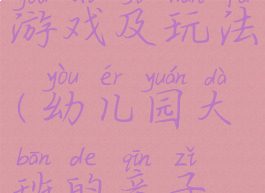 游戏及玩法
yòu ér yuán dà
(幼儿园大
bān de qīn zǐ
班的亲子